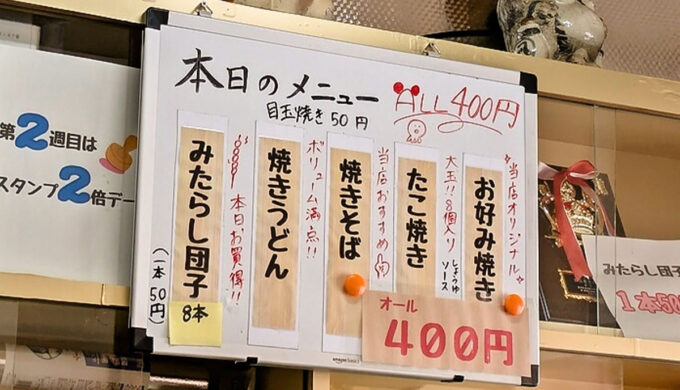 本日のメニュー
ALL400円
目玉焼き50円
*当店オリジナル*
お好み焼き
大玉!!8個入り
しょうゆ
ソース
たこ焼き
当店おすすめ
焼きそば
ボリューム満点!!
焼きうどん
本日お買得!!
みたらし団子
8本
(一本50円)
オール
400円
amazon basics
第2週目は
スタンプ2倍デー
みたらし団子
1本50